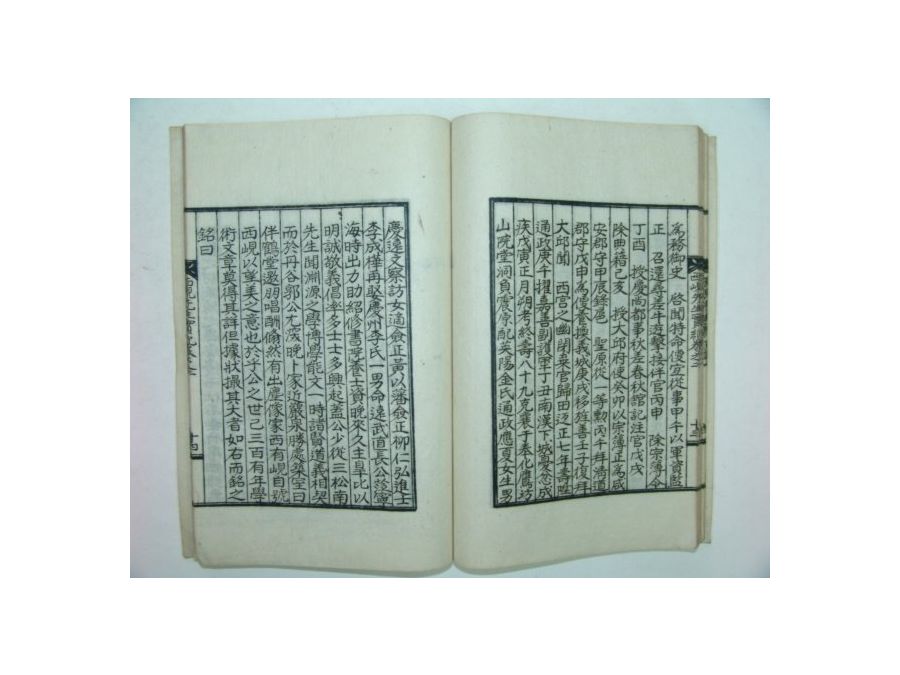 爲務御史 啓聞特命優宣從事甲午以軍資監
正 召還尋差牛遊擊接伴官丙申 除宗簿令
丁酉 授慶尚都事秋差春秋館記注官戊戌
除典籍己亥 授大邱府使癸卯以宗簿正爲咸
安郡守甲辰錄扈 聖原從一等勳丙午拜清道
郡守戊申爲養換義城庚戌移 善壬子復拜
大邱聞 西宮之幽閉棄官歸田廷正七年壽陞
通政庚午擢嘉善副護軍丁丑南漢下城憂 成
疾戊寅正月 考終壽八十九克襄于奉化鷹坊
山院堂洞負 原配英陽金氏通政應夏女生男
慶遠文察訪女適僉正黃以潘僉正柳仁弘進士
李成樺再娶慶州李氏一男命遠武直長公莅寧
海時出力助紹修書院養士資晚來久主皐比以
明誠敬義倡率多士士多興起蓋公少從三松南
先生聞淵源之學博學能文一時諸賢道義相
而於丹谷郭公尤深晚卜家近巖泉勝處築室曰
伴鶴堂遨朋唱酬翛然有出塵像家西有峴自號
西峴以望美之意也於乎公之世已三百有年學
術文章莫得其詳但據狀撮其大者如右而銘之
銘曰